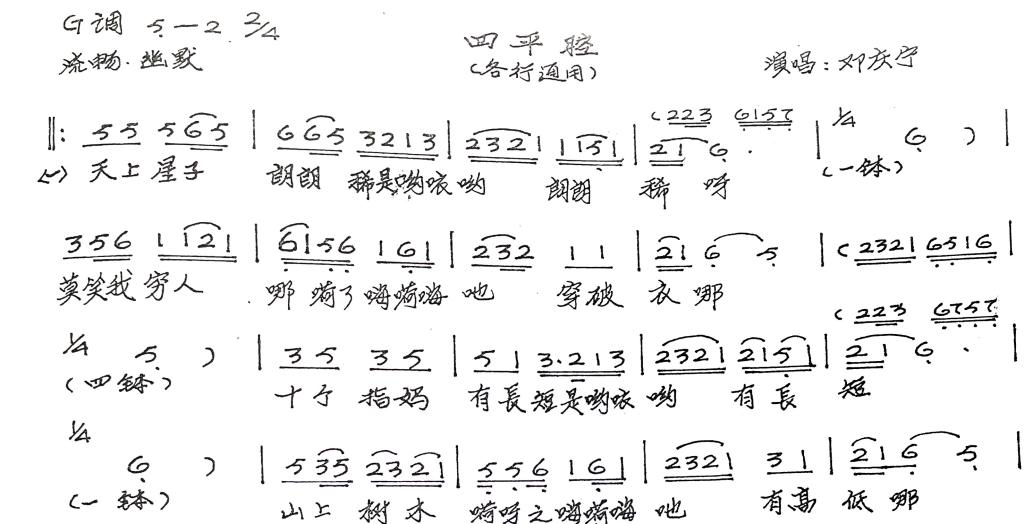 G调 5—2 2/4
四平腔
流畅.幽默
(各行通用)
演唱:邓庆宁
(223 6157
‖: 55 565 | 665 3213 | 2321 1151 | 21 6 . | 1/4 6 ) |
天上星子 朗朗 稀是哟咳哟 朗朗 稀 呀 (一钵)
356 1121 | 6156 161 | 232 11 | 21 6 5 | (2321 6516 |
莫笑我穷人 哪 嗬了嗨嗬嗨 吔 穿破 衣 哪
(223 6757
1/4 5 ) | 35 35 | 51 3.213 | 2321 2151 | 21 6 . |
(四钵) 十个 指妈 有長短是哟咳 哟 有長 短
1/4
6 ) | 535 2321 | 556 161 | 2321 31 | 216 5 |
(一钵) 山上 树木 嗬呀之嗨嗬嗨 吔 有高 低 哪